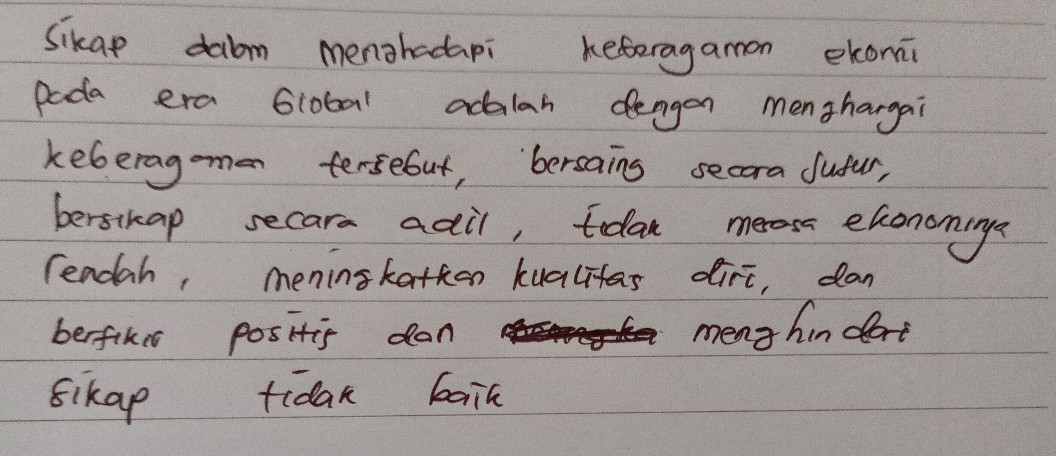 Sikap dalam menghadapi keberagaman ekomi
pada era Global adalah dengan menghargai
keberagaman tersebut, bersaing secara Jujur,
bersikap secara adil, tidak merasa ekonominya
rendah, meningkatkan kualitas diri, dan
berfikir positif dan menghindari
sikap tidak baik